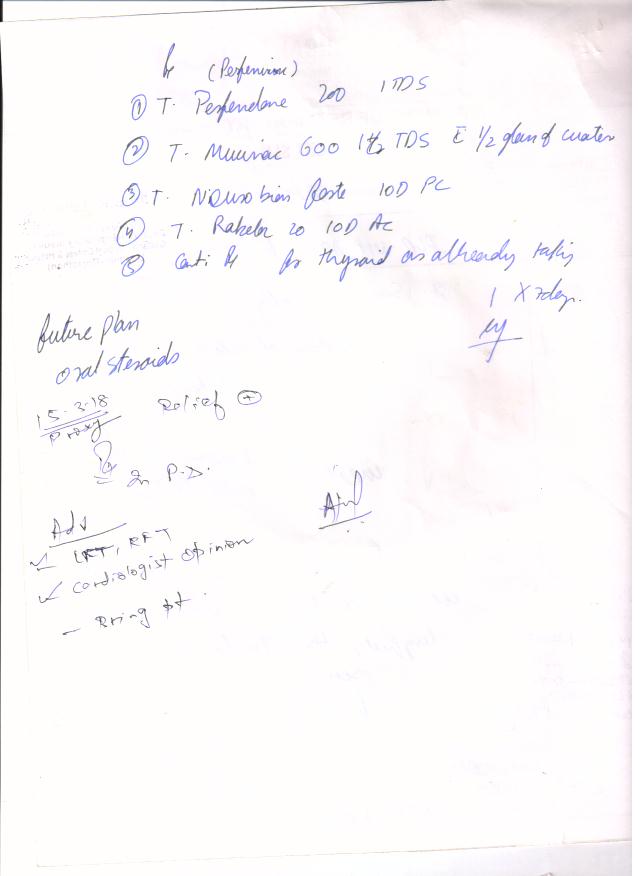 Rx (Perfenirone)
① T. Perfendane 200 1 TDS
② T. Mucinac 600 1 TDS c̄ 1/2 glass of water
③ T. Neurobion forte 1 OD PC
④ T. Rabeloc 20 1 OD AC
⑤ Conti Rx for thyroid as already taking
1 X 7 days.
future plan
oral steroids
15-3-18 Relief ⊕
Proxy
In P.D.
Adv
✓ LFT, RFT
✓ Cardiologist opinion
- Bring pt.